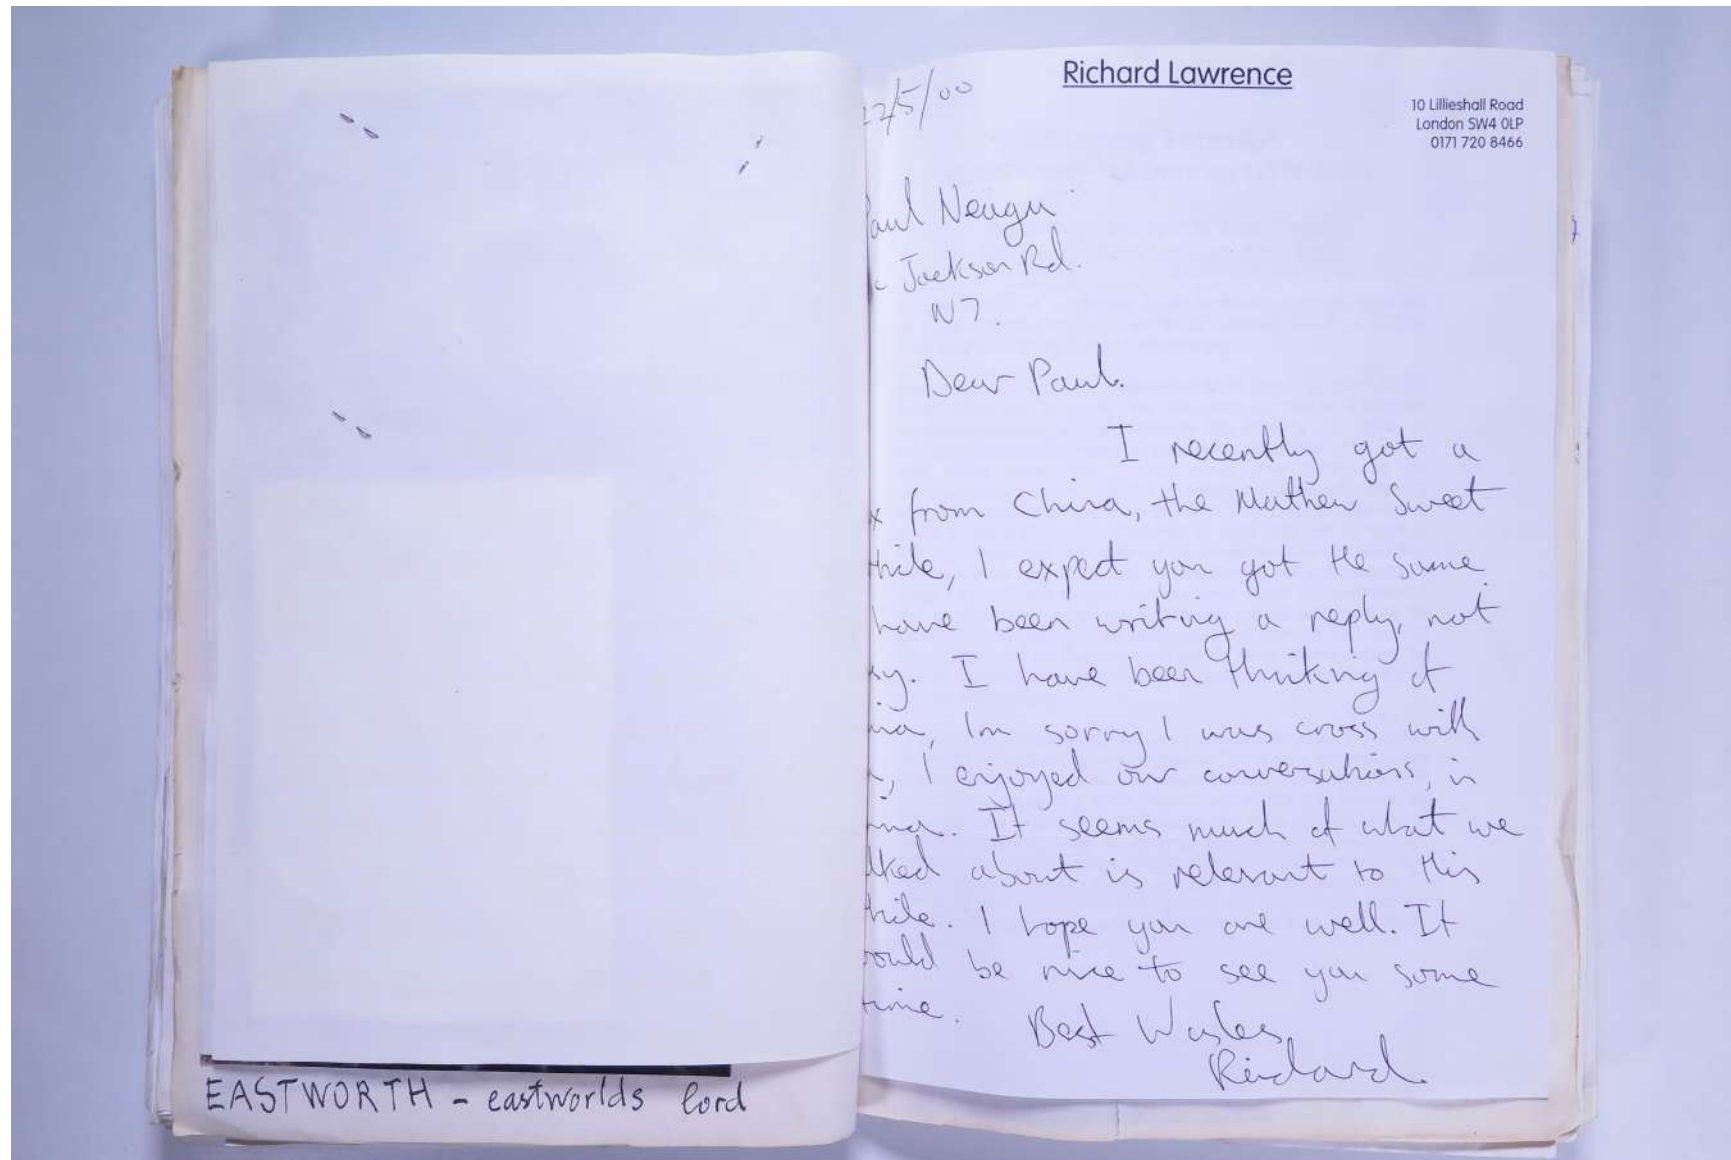 EASTWORTH - eastworlds lord
Richard Lawrence
10 Lillieshall Road
London SW4 0LP
0171 720 8466
22/5/00
aul Neagu
Jackson Rd.
N7.
Dear Paul.
I recently got a
x from China, the Mathew Sweet
hile, I expect you got the same
have been writing a reply, not
sy. I have been thinking of
ina, Im sorry I was cross with
, I enjoyed our conversations, in
ina. It seems much of what we
lked about is relevant to this
hile. I hope you are well. It
ould be nice to see you some
time.
Best Wishes
Richard.